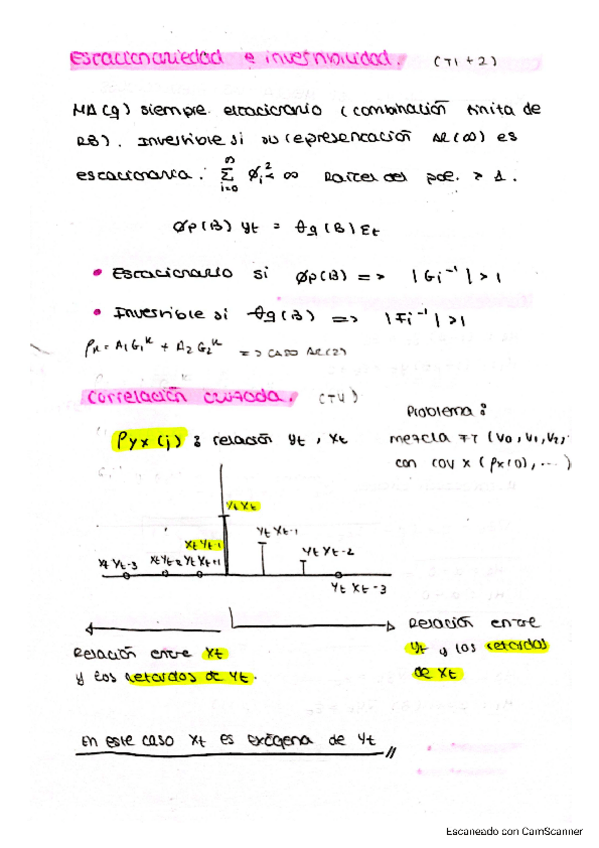 Estacionariedad e invertibilidad. (T1 + 2)
MA(q) siempre estacionario (combinación finita de
RB). Invertible si su representación AR(∞) es
estacionaria. ∞ Σ i=0 φi² < ∞ Raíces del pol. > 1.
φp(B) yt = θq(B) εt
• Estacionario si φp(B) => |Gi⁻¹| > 1
• Invertible si θq(B) => |Fi⁻¹| > 1
ρk = A1G1ᵏ + A2G2ᵏ => CASO AR(2)
Correlación cruzada. (T4)
Problema:
ρyx(j) : relación yt, xt
mezcla FT (v0, v1, v2,
con cov x (ρx(0), ...)
yt xt
xt yt-1
yt xt-1
yt xt-2
xt yt-3 xt yt-2 yt xt+1
yt xt-3
Relación entre
yt y los retardos
de xt
Relación entre xt
y los retardos de yt.
En este caso xt es exógena de yt //
Escaneado con CamScanner